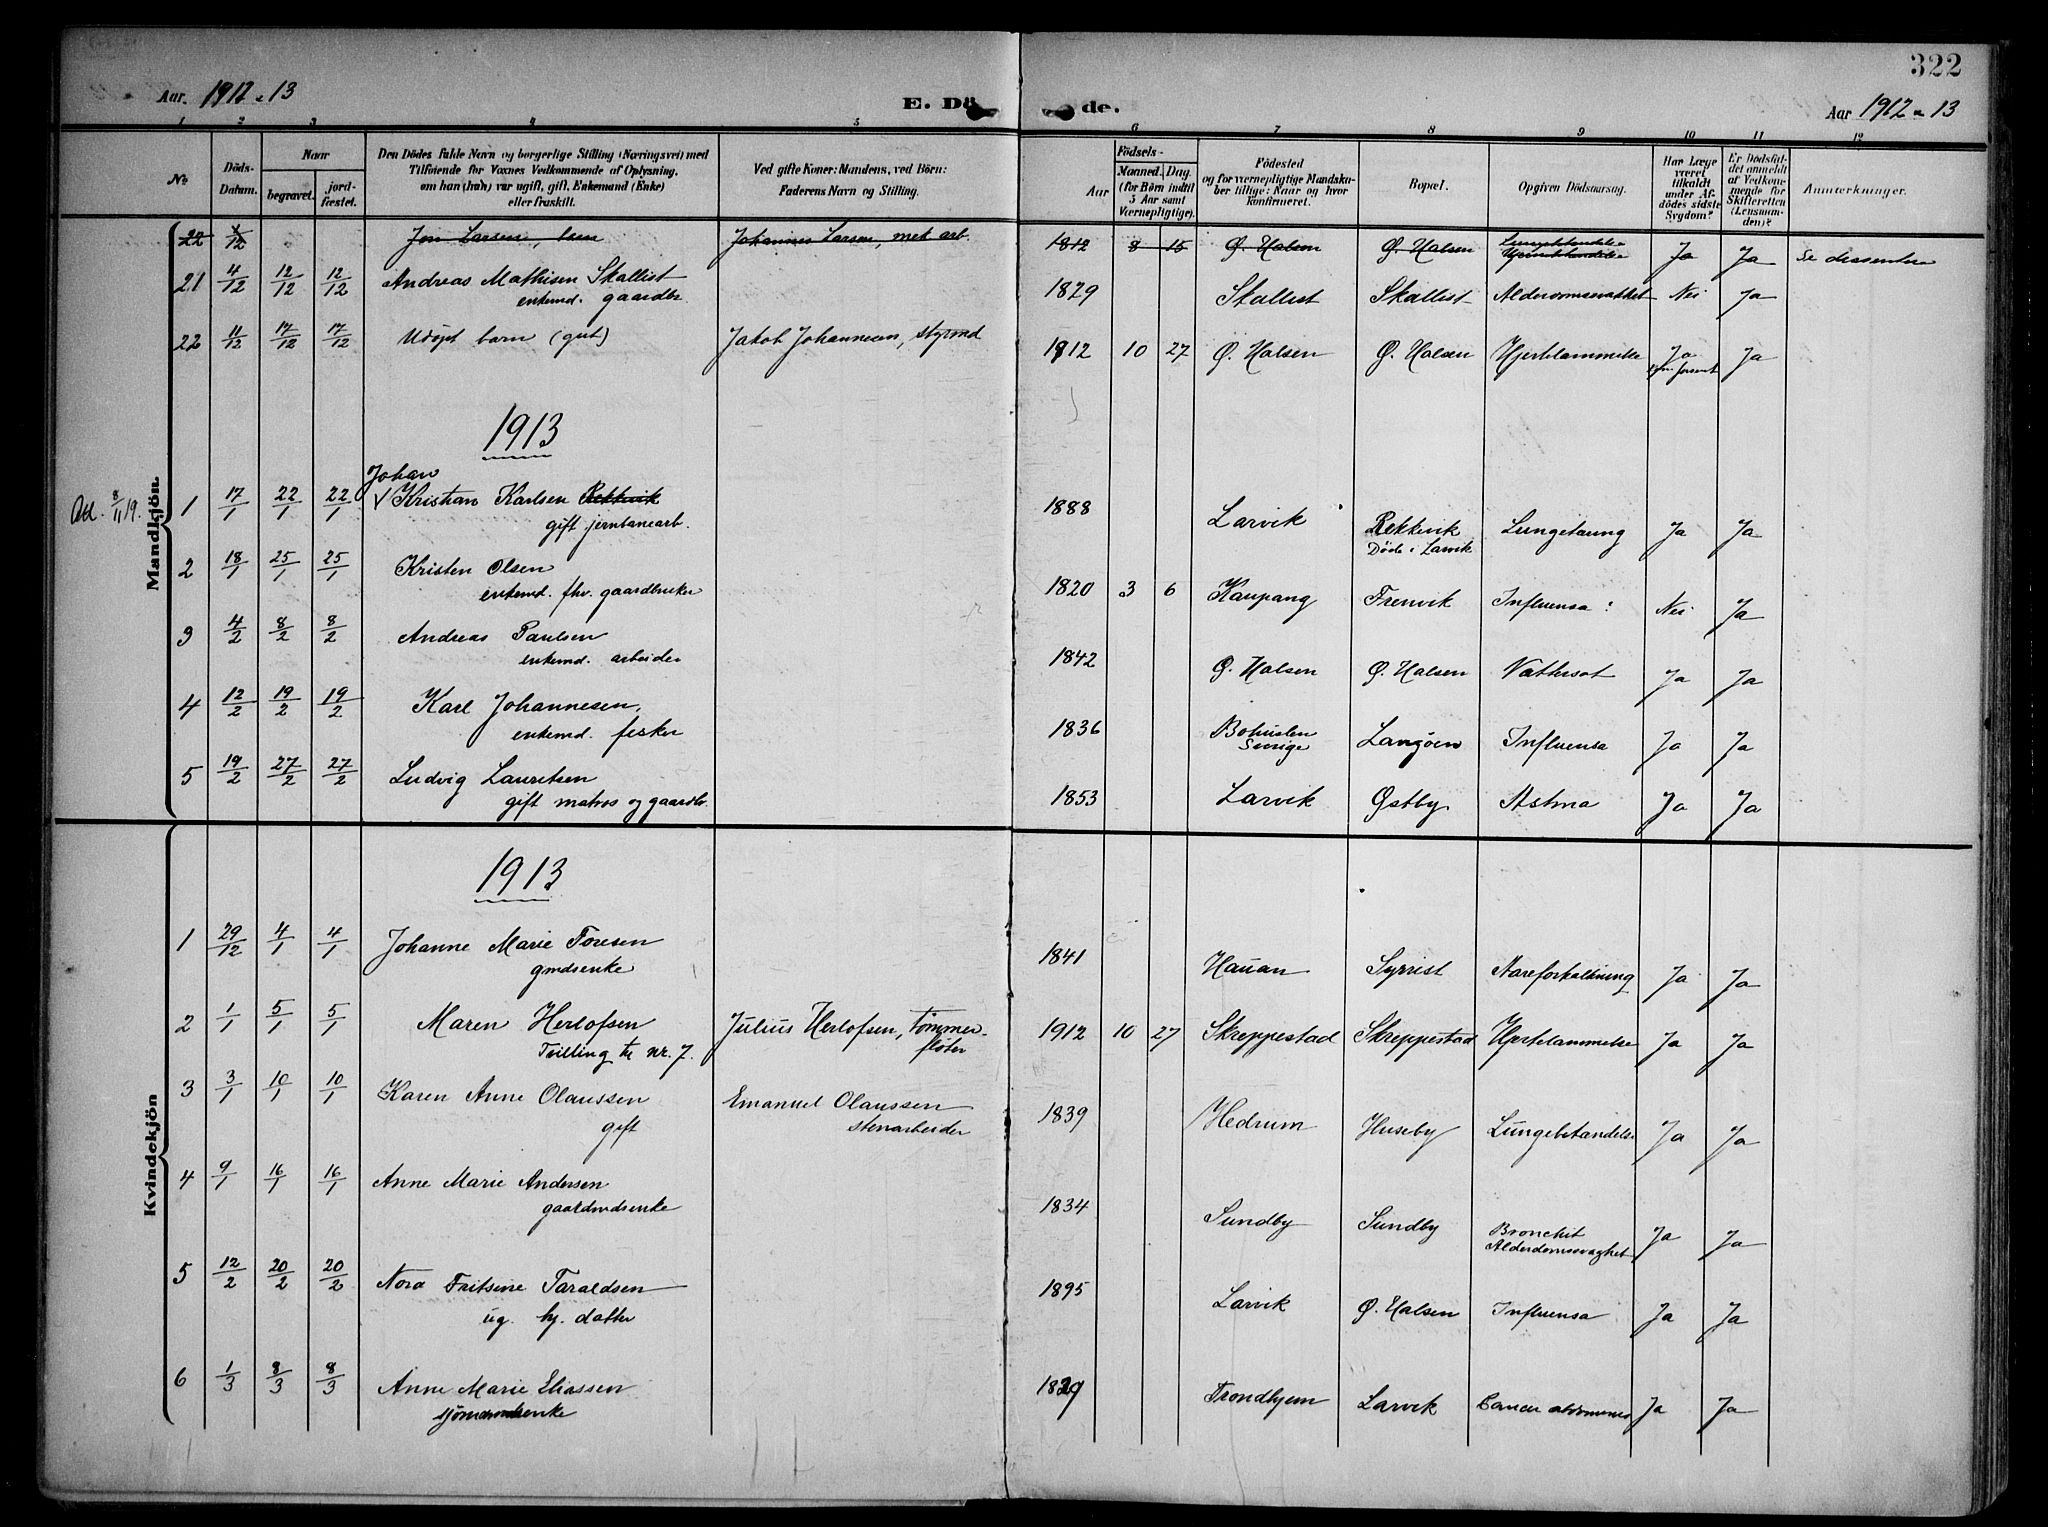 322
Aar. 1912-13 E. Dö de. Aar 1912-13
1 2 3 4 5 6 7 8 9 10 11 12
No. Döds-Datum. Naar begravet. jordfæstet. Den Dödes fulde Navn og borgerlige Stilling (Næringsvei) med Tilföiende for Voxnes Vedkommende af Oplysning, om han (hun) var ugift, gift, Enkemand (Enke) eller fraskilt. Ved gifte Koner: Mandens, ved Börn: Faderens Navn og Stilling. Födsels- Aar Maaned. Dag. (for Börn indtil 5 Aar samt Værnepligtige). Födested og for værnepligtige Mandskaber tillige: Naar og hvor konfirmeret. Bopæl. Opgiven Dödsaarsag. Har Læge været tilkaldt under Afdödes sidste Sygdom? Er Dödsfaldet anmeldt af Vedkommende for Skifteretten (Lensmanden)? Anmærkninger.
Mandkjön.
22 1/12 Jon Larsen, Johannes Larsen, mek arb. 1812 8 15 Ø. Halsen Ø. Halsen Lungebetændelse Hjernebetændelse Ja Ja Se
21 4/12 12/12 12/12 Andreas Mathisen Skallist 1829 Skallist Skallist Alderdomssvakhet Nei Ja
enkemd. gaardbr
22 11/12 17/12 17/12 Udöpt barn (gut) Jakob Johannessen, styrmd 1912 10 27 Ø. Halsen Ø. Halsen Hjertelammelse Ja Ja
1913
Johan
Att. 8/11 19. 1 17/1 22/1 22/1 Kristian Karlsen Rekkevik 1888 Larvik Rekkevik Lungetæring Ja Ja
gift jernbanearb. Döde i Larvik
2 18/1 25/1 25/1 Kristen Olsen 1820 3 6 Kaupang Trenvik Influensa Nei Ja
enkemd. fhv. gaardbruker
3 4/2 8/2 8/2 Andreas Paulsen 1842 Ø. Halsen Ø. Halsen Vattersot Ja Ja
enkemd. arbeider
4 12/2 19/2 19/2 Karl Johannesen, 1836 Bohuslen Sverige Langöen Influensa Ja Ja
enkemd. fisker
5 19/2 27/2 27/2 Ludvig Lauritsen 1853 Larvik Østby Astma Ja Ja
gift matros og gaardbr.
Kvindekjön
1913
1 29/12 4/1 4/1 Johanne Marie Toresen 1841 Hauan Syrrist Aareforkalkning Ja Ja
gmdsenke
2 1/1 5/1 5/1 Maren Herlofsen Julius Herlofsen, tømmer- 1912 10 27 Skreppestad Skreppestad Hjertelammelse Ja Ja
Tvilling til nr. 7. fløter
3 3/1 10/1 10/1 Karen Anne Olaussen Emanuel Olaussen 1839 Hedrum Huseby Lungebetændelse Ja Ja
gift stenarbeider
4 9/1 16/1 16/1 Anne Marie Andersen 1834 Sundby Sundby Bronchit Ja Ja
gaardmdsenke Alderdomssvaghet
5 12/2 20/2 20/2 Nora Fritsine Taraldsen 1895 Larvik Ø. Halsen Influensa Ja Ja
ug. hj. datter
6 1/3 8/3 8/3 Anne Marie Eliassen 1829 Trondhjem Larvik Cancer abdominis Ja Ja
sjömandsenke